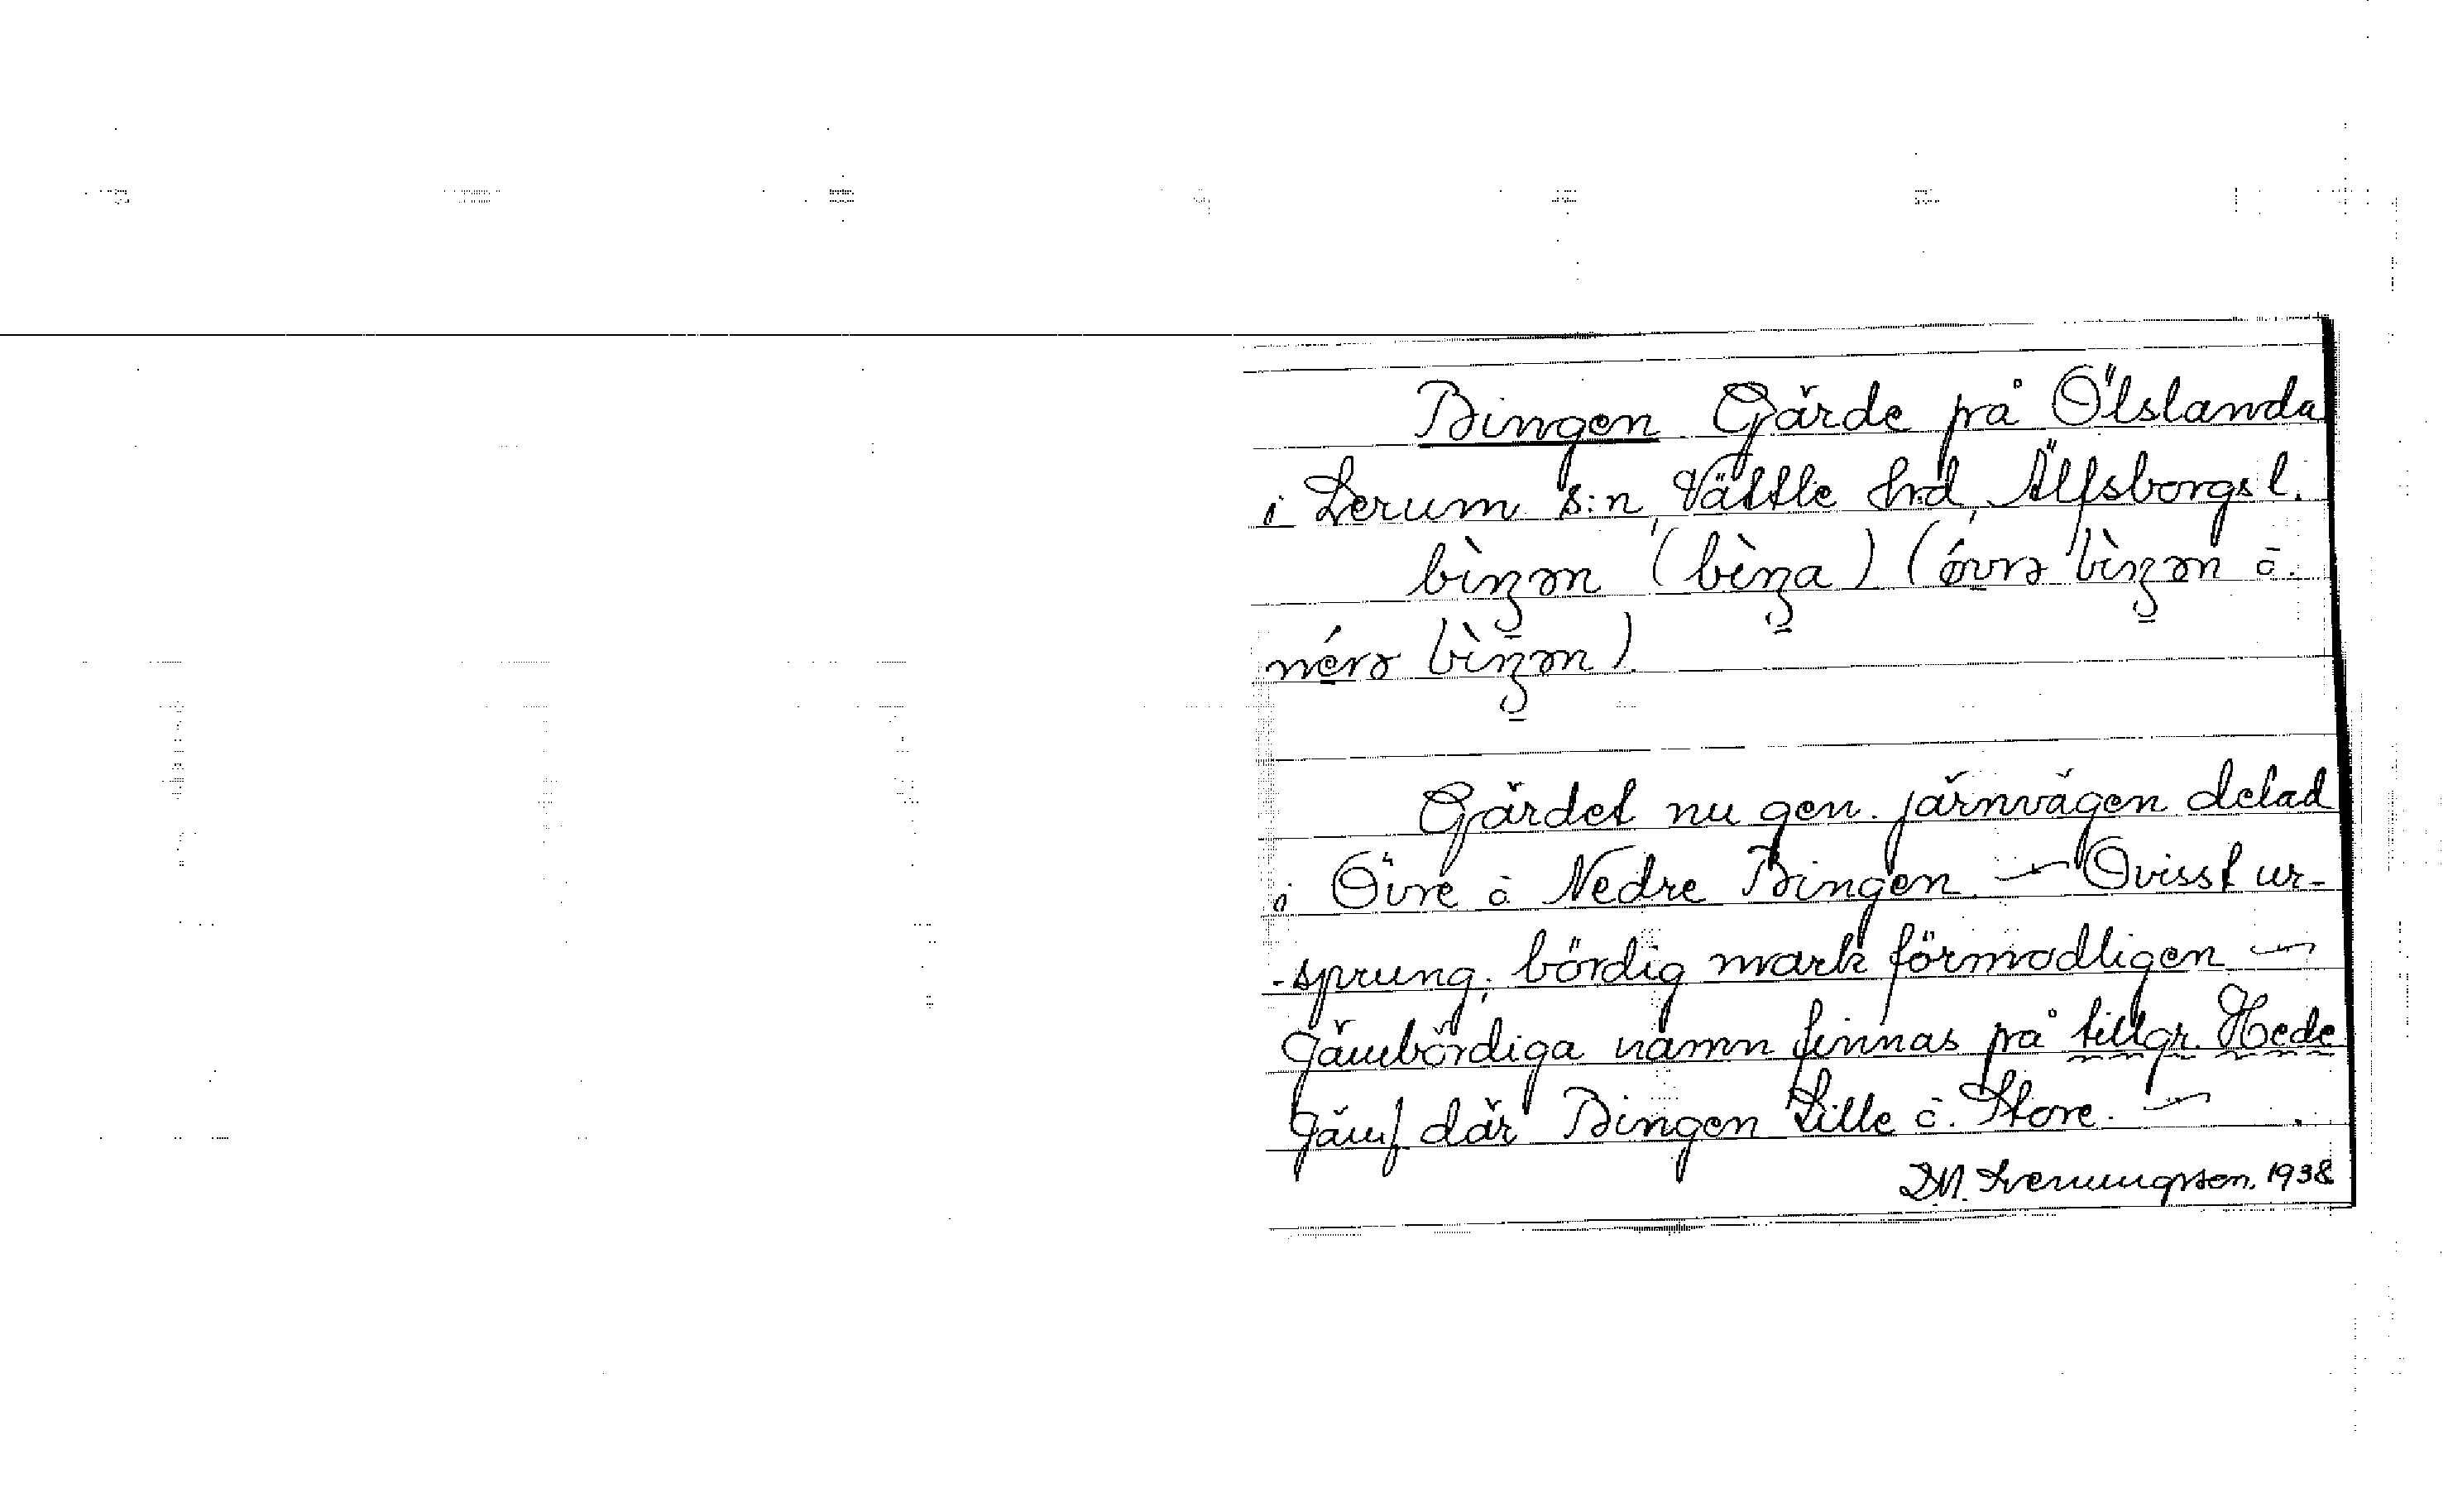 Bingen Gärde på Ölslanda
i Lerum s:n, Vättle hrd, Älfsborgs l.
bìŋən (bèŋa) (óvrə bìŋən o.
nérə bìŋən)
Gärdet nu gen. järnvägen delad
i Övre o Nedre Bingen — Ovisst ur-
-sprung; bördig mark förmodligen —
Jämbördiga namn finnas på tillgr. Hede
Jämf där Bingen Lille o. Store. —
D.M. Svenungsson. 1938